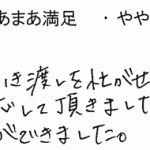 あまあ満足 ・やや
き渡しを社がせ
して頂きました
ができました。